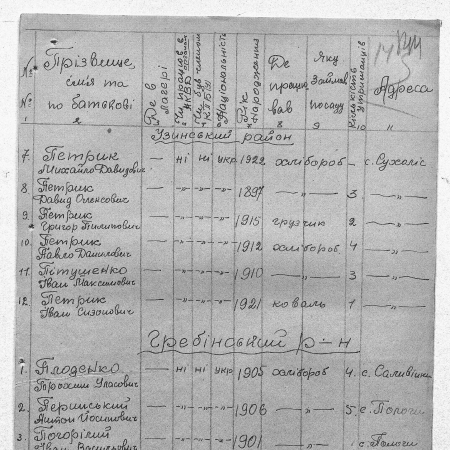 №№ Прізвище, ім'я та по батькові | Де в лагері | Чи працював в НКВД | Чи був членом КП(б)У | Національність | Рік народження | Де працював | Яку займав посаду | Кількість утриманців | Адреса
1 2 8 9 10 11
Узинський район
7. Петрик Михайло Давидович — ні ні укр. 1922 хлібороб — с. Сухоліс
8 Петрик Давид Олексович — -„- -„- -„- 1897 —„— 3 —„—
9. Петрик Григор Пилипович — -„- -„- -„- 1915 грузчик 2 —„—
10. Петрик Павло Данилович — -„- -„- -„- 1912 хлібороб 4 —„—
11. Пітушенко Іван Максимович — -„- -„- -„- 1910 —„— 3 —„—
12. Петрик Іван Сизонович — -„- -„- -„- 1921 коваль 1 —„—
Гребінський р-н
1. Плоденко Трохим Уласович — ні ні укр 1905 хлібороб 4. с.
2. Першський Антон Йосипович — -„- -„- -„- 1906 —„— 5. с. Пологи
3. Погорілий Іван Васильович — -„- -„- -„- 1901 —„— с. Пологи